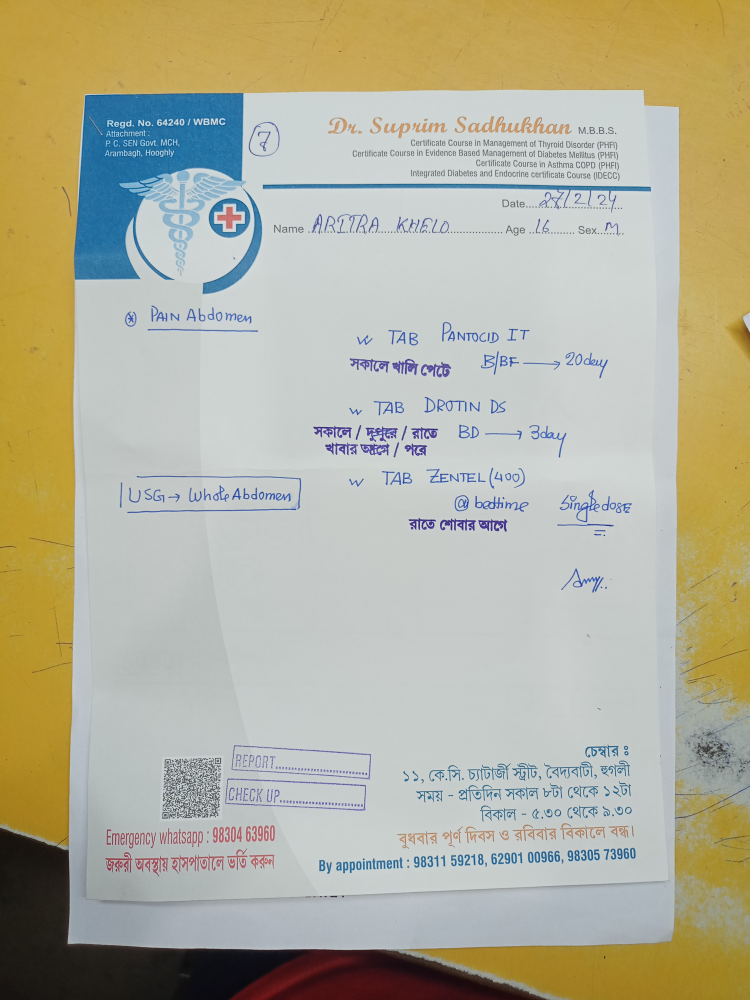 Regd. No. 64240 / WBMC
Attachment :
P. C. SEN Govt. MCH,
Arambagh, Hooghly
7
Dr. Suprim Sadhukhan M.B.B.S.
Certificate Course in Management of Thyroid Disorder (PHFI)
Certificate Course in Evidence Based Management of Diabetes Mellitus (PHFI)
Certificate Course in Asthma COPD (PHFI)
Integrated Diabetes and Endocrine certificate Course (IDECC)
Date 27/2/24
Name ARITRA KHELO Age 16 Sex M
PAIN Abdomen
TAB PANTOCID IT
সকালে খালি পেটে B/BF → 20day
TAB DROTIN DS
সকালে / দুপুরে / রাতে BD → 3day
খাবার আগে / পরে
TAB ZENTEL (400)
USG → Whole Abdomen
@ bedtime Single dose
রাতে শোবার আগে
REPORT
CHECK UP
Emergency whatsapp : 98304 63960
জরুরী অবস্থায় হাসপাতালে ভর্তি করুন
চেম্বার :
১১, কে.সি. চ্যাটার্জী স্ট্রীট, বৈদ্যবাটী, হুগলী
সময় - প্রতিদিন সকাল ৮টা থেকে ১২টা
বিকাল - ৫.৩০ থেকে ৯.৩০
বুধবার পূর্ণ দিবস ও রবিবার বিকালে বন্ধ।
By appointment : 98311 59218, 62901 00966, 98305 73960